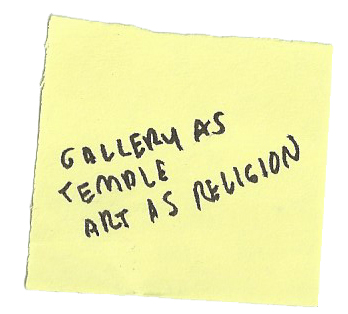 GALLERY AS
TEMPLE
ART AS RELIGION